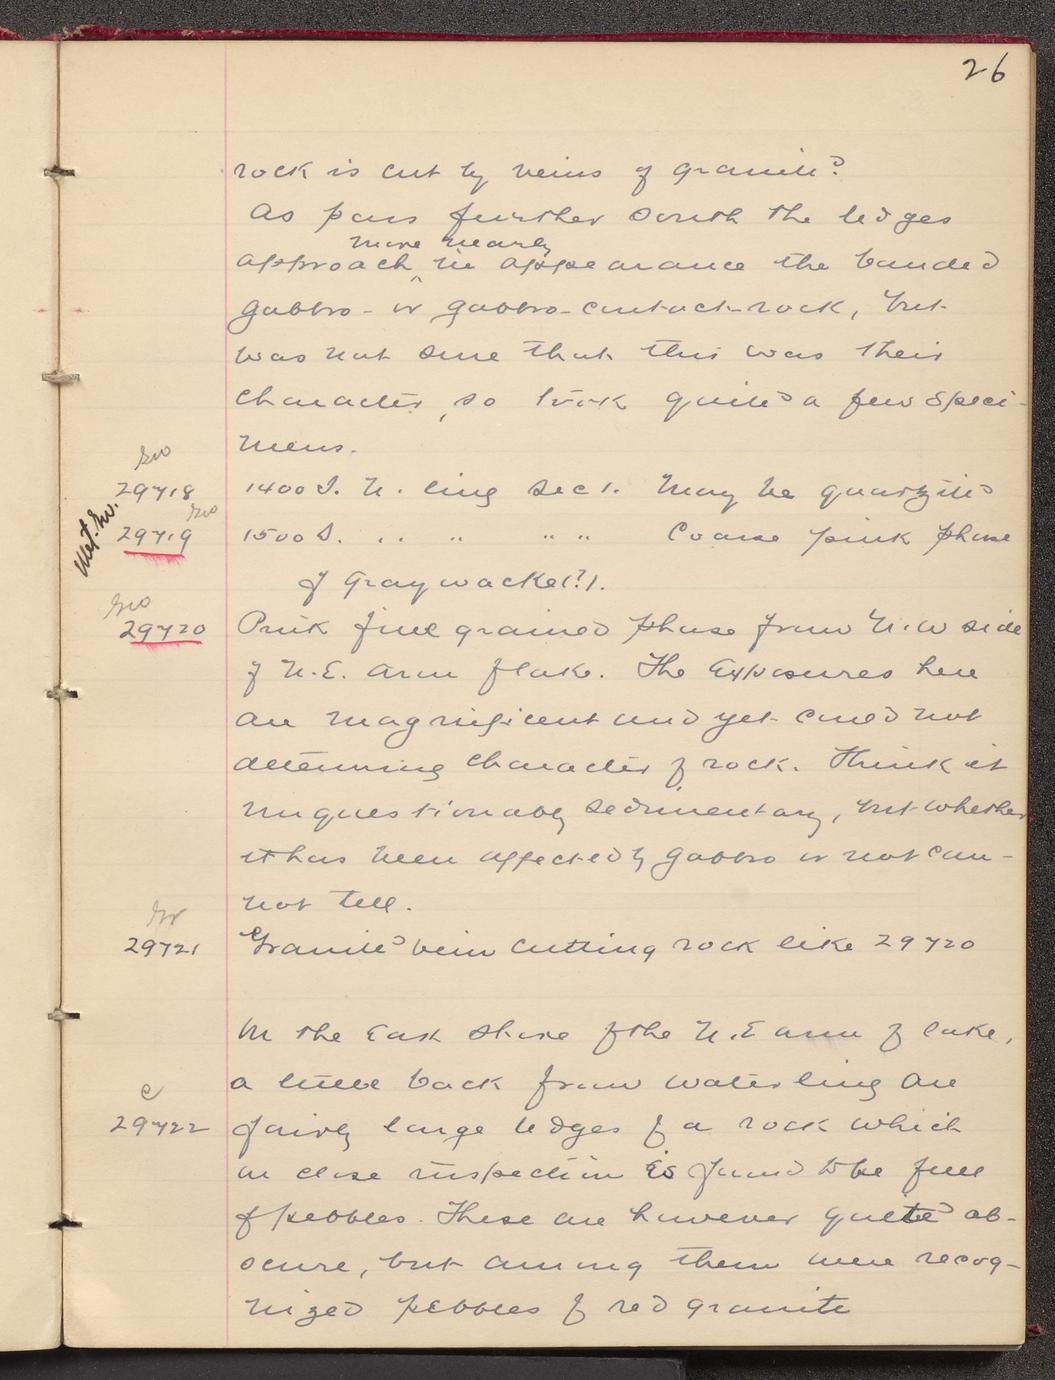 26
rock is cut by veins of granite.
As pass further south the ledges
more nearly
approach ^ in appearance the banded
gabbro- or gabbro-contact-rock, but
was not sure that this was their
character, so took quite a few speci-
mens.
29718 1400 S. N. line Sec 1. May be quartzite
29719 1500 S. " " " " Coarse pink phase
of Graywacke(?).
29720 Pink fine grained phase from N.W side
of N.E. arm of lake. The Exposures here
are magnificent and yet could not
determine character of rock. Think it
unquestionably sedimentary, but whether
it has been affected by gabbro or not can-
not tell.
29721 Granite vein cutting rock like 29720
On the East shore of the N.E arm of lake,
a little back from water line are
29722 fairly large ledges of a rock which
on close inspection is found to be full
of pebbles. These are however quite ob-
scure, but among them were recog-
nized pebbles of red granite